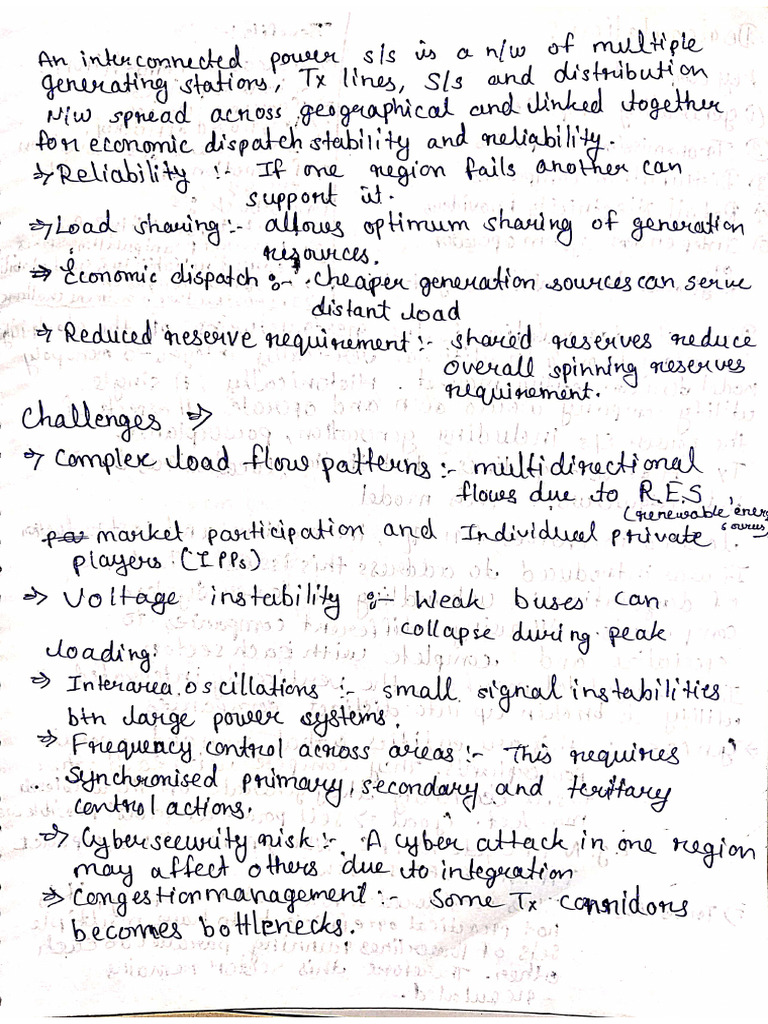 An interconnected power s/s is a n/w of multiple
generating stations, Tx lines, S/s and distribution
N/w spread across geographical and linked together
for economic dispatch stability and reliability.
⇒ Reliability :- If one region fails another can
support it.
⇒ Load sharing :- allows optimum sharing of generation
resources.
⇒ Economic dispatch :- cheaper generation sources can serve
distant load
⇒ Reduced reserve requirement :- shared reserves reduce
overall spinning reserves
requirement.
Challenges ⇒
⇒ Complex load flow patterns :- multidirectional
flows due to R.E.S,
(renewable energy
sources)
market participation and Individual private
players (IPPs)
⇒ Voltage instability :- Weak buses can
collapse during peak
loading.
⇒ Interarea oscillations :- small signal instabilities
btn large power systems.
⇒ Frequency control across areas :- This requires
synchronised primary, secondary and tertitary
control actions.
⇒ Cybersecurity risk :- A cyber attack in one region
may affect others due to integration
⇒ Congestion management :- Some Tx corridors
becomes bottlenecks.